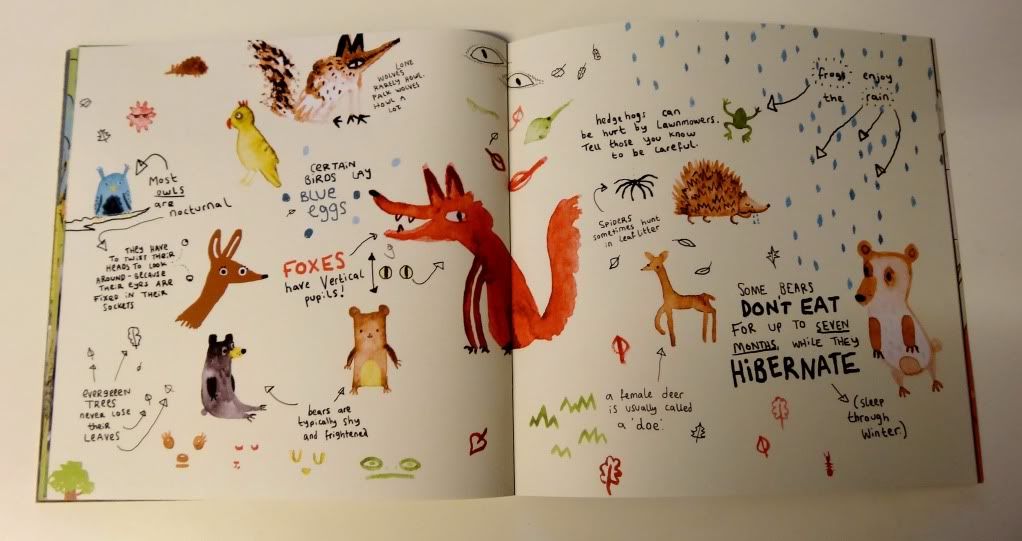 LONE
WOLVES
RARELY HOWL.
PACK WOLVES
HOWL A
LOT
Most
owls
are
nocturnal
CERTAIN
BIRDS LAY
BLUE
eggs
THEY HAVE
TO TWIST THEIR
HEADS TO LOOK
AROUND-BECAUSE
THEIR EYES ARE
FIXED IN THEIR
SOCKETS
FOXES
have Vertical
pupils!
EVERGREEN
TREES
never lose
their
LEAVES
bears are
typically shy
and frightened
frogs enjoy
the rain.
hedgehogs can
be hurt by lawnmowers.
Tell those you know
to be careful.
SPIDERS
sometimes hunt
in leaf litter
SOME BEARS
DON'T EAT
FOR UP TO SEVEN
MONTHS, WHILE THEY
HIBERNATE
(sleep
through
winter.)
a female deer
is usually called
a 'doe'.